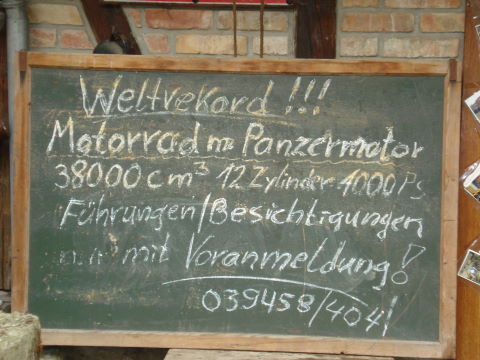 Weltrekord!!!
Motorrad m. Panzermotor
38000 cm³ 12 Zylinder 1000 Ps
Führungen/Besichtigungen
mit Voranmeldung!
039458/404